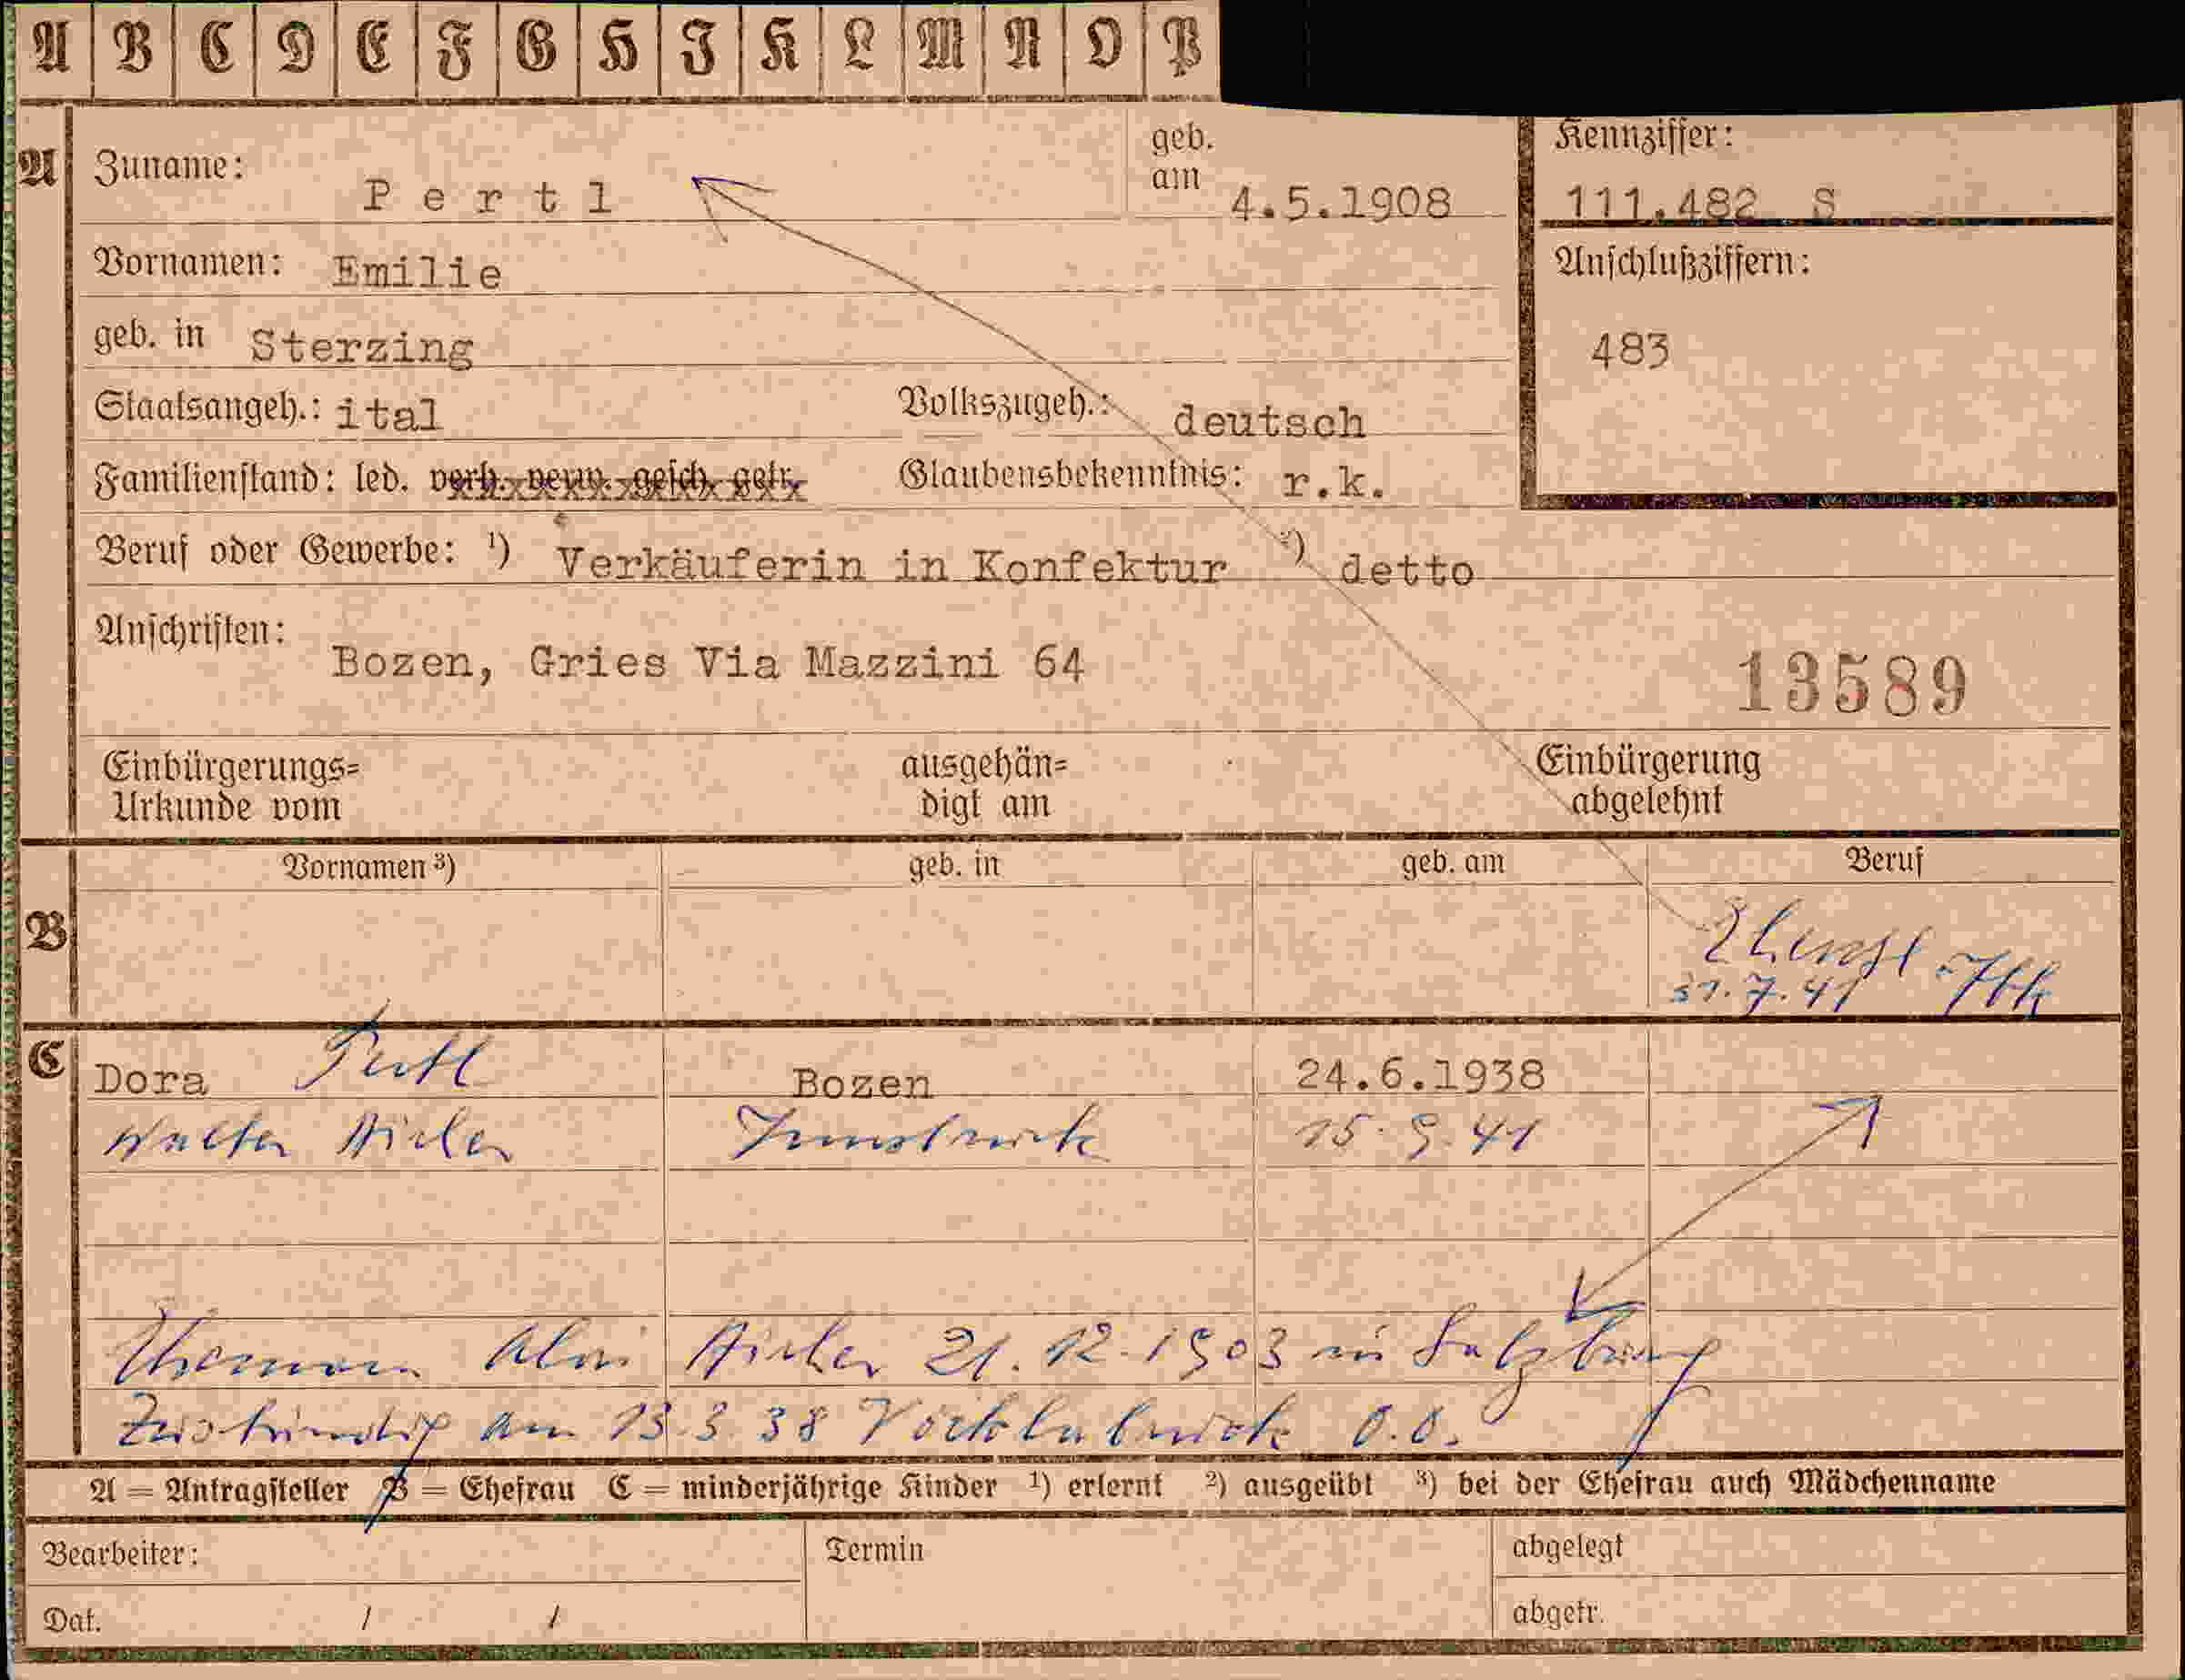 A B C D E F G H I K L M N O P
A Zuname: Pertl geb. am 4.5.1908 Kennziffer: 111.482 S
Vornamen: Emilie Anschlußziffern:
geb. in Sterzing 483
Staatsangeh.: ital Volkszugeh.: deutsch
Familienstand: led. verh. verw. gesch. getr. Glaubensbekenntnis: r.k.
Beruf oder Gewerbe: ¹) Verkäuferin in Konfektur ²) detto
Anschriften:
Bozen, Gries Via Mazzini 64
13589
Einbürgerungs= ausgehän= Einbürgerung
Urkunde vom digt am abgelehnt
Vornamen ³) geb. in geb. am Beruf
B
31.7.41
C Dora Pertl Bozen 24.6.1938
Walter Aicher Innsbruck 15.9.41
Ehemann Alois Aicher 21.12.1903 in Salzburg
Zuständig am 13.3.38 Vöcklabruck O.D.
A = Antragsteller B = Ehefrau C = minderjährige Kinder ¹) erlernt ²) ausgeübt ³) bei der Ehefrau auch Mädchenname
Bearbeiter: Termin abgelegt
Dat. / / abgetr.